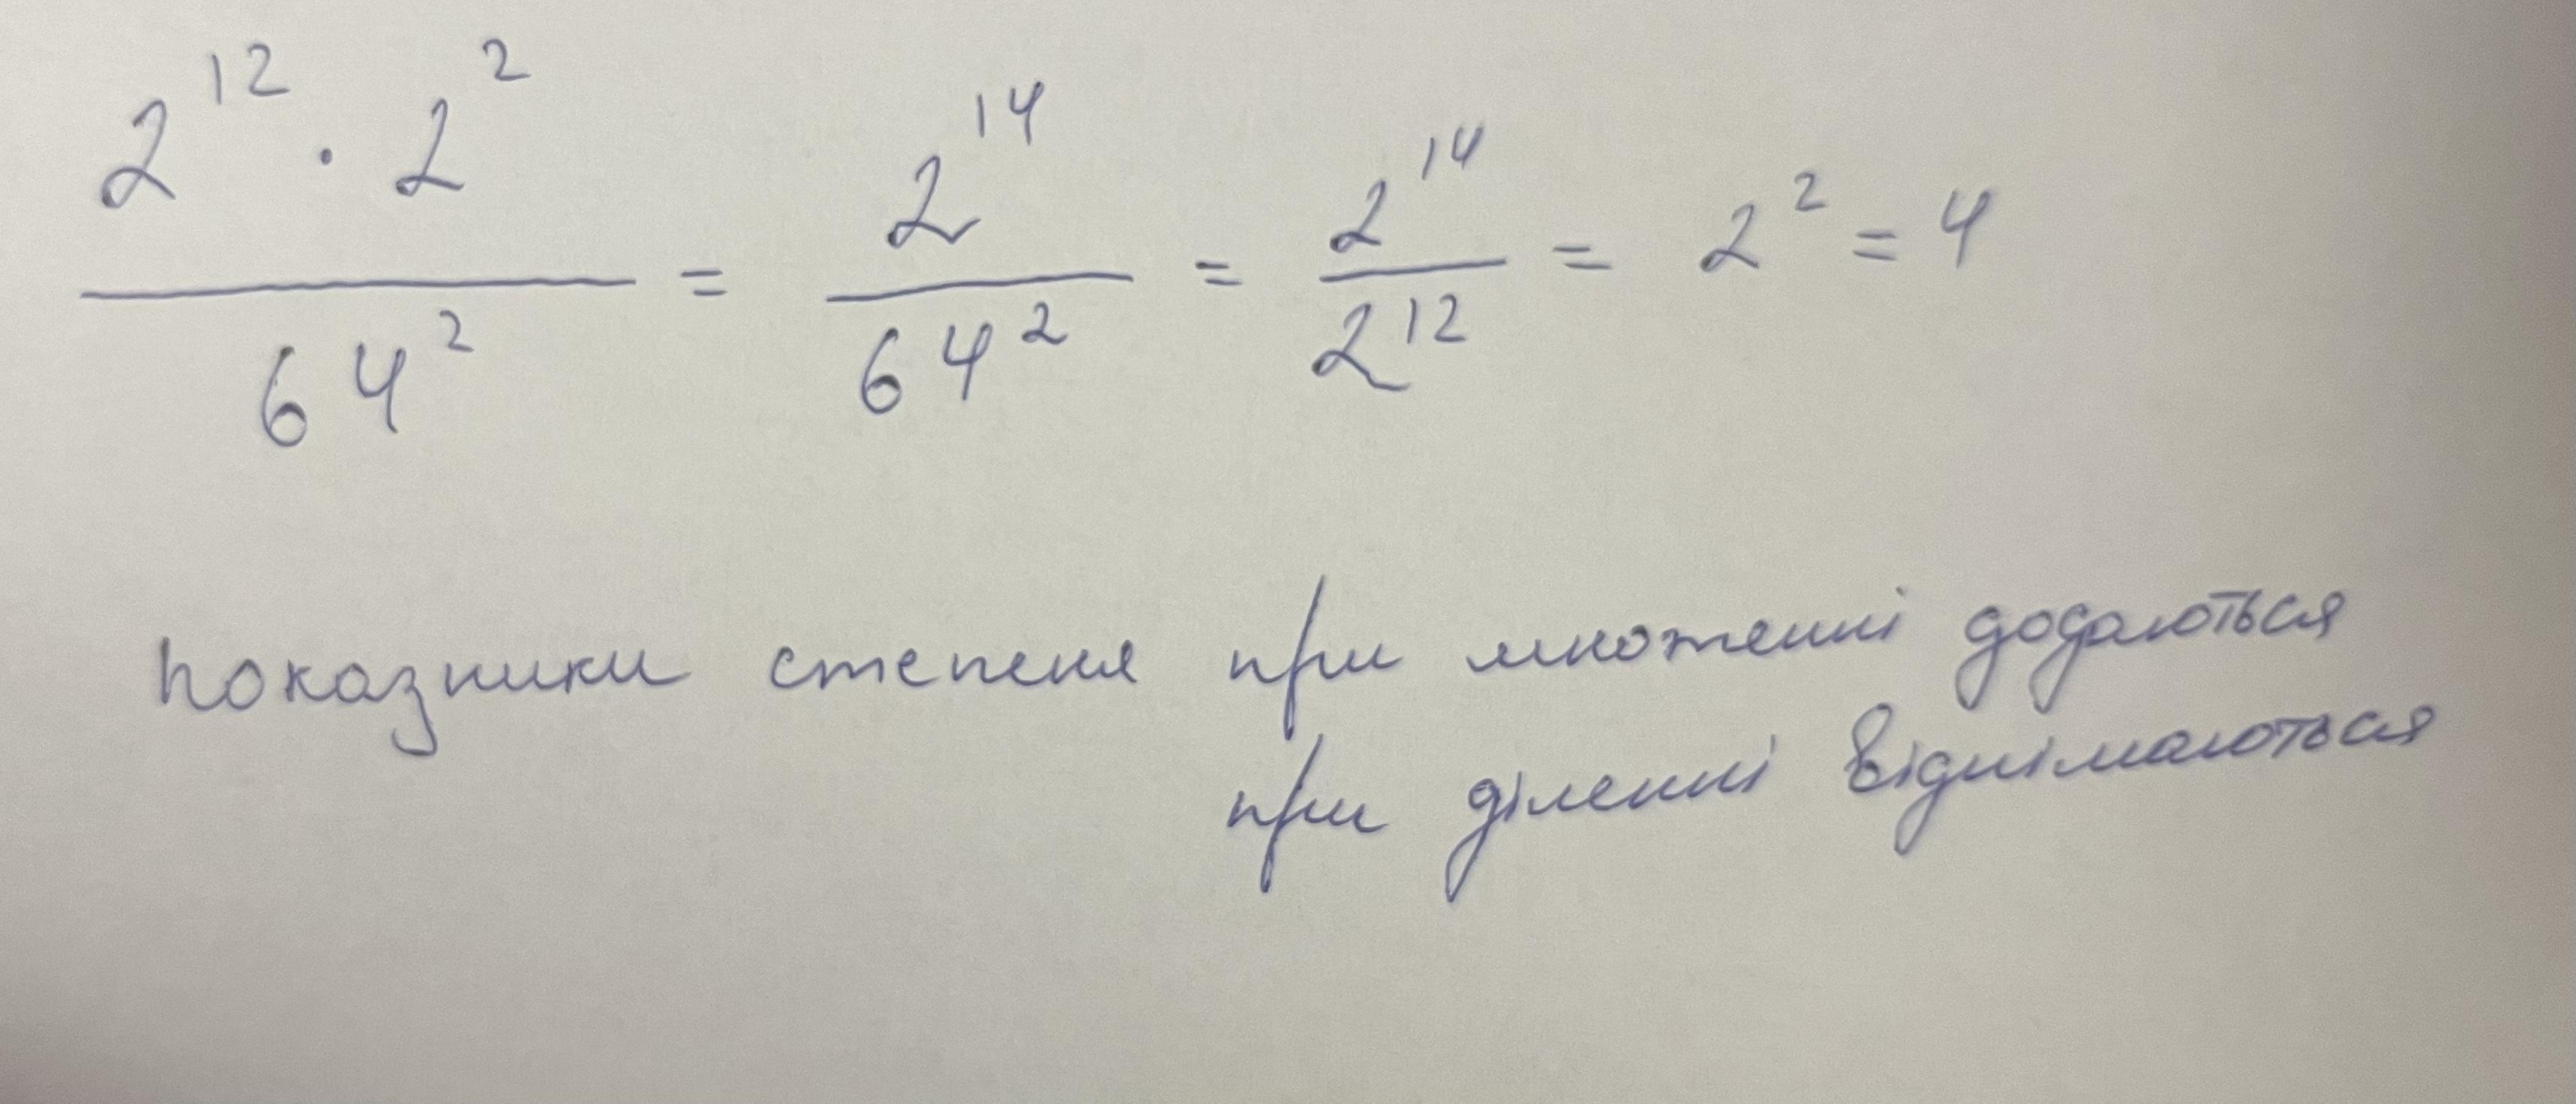 2¹² · 2² / 64² = 2¹⁴ / 64² = 2¹⁴ / 2¹² = 2² = 4
показники степеня при множенні додаються
при діленні віднімаються